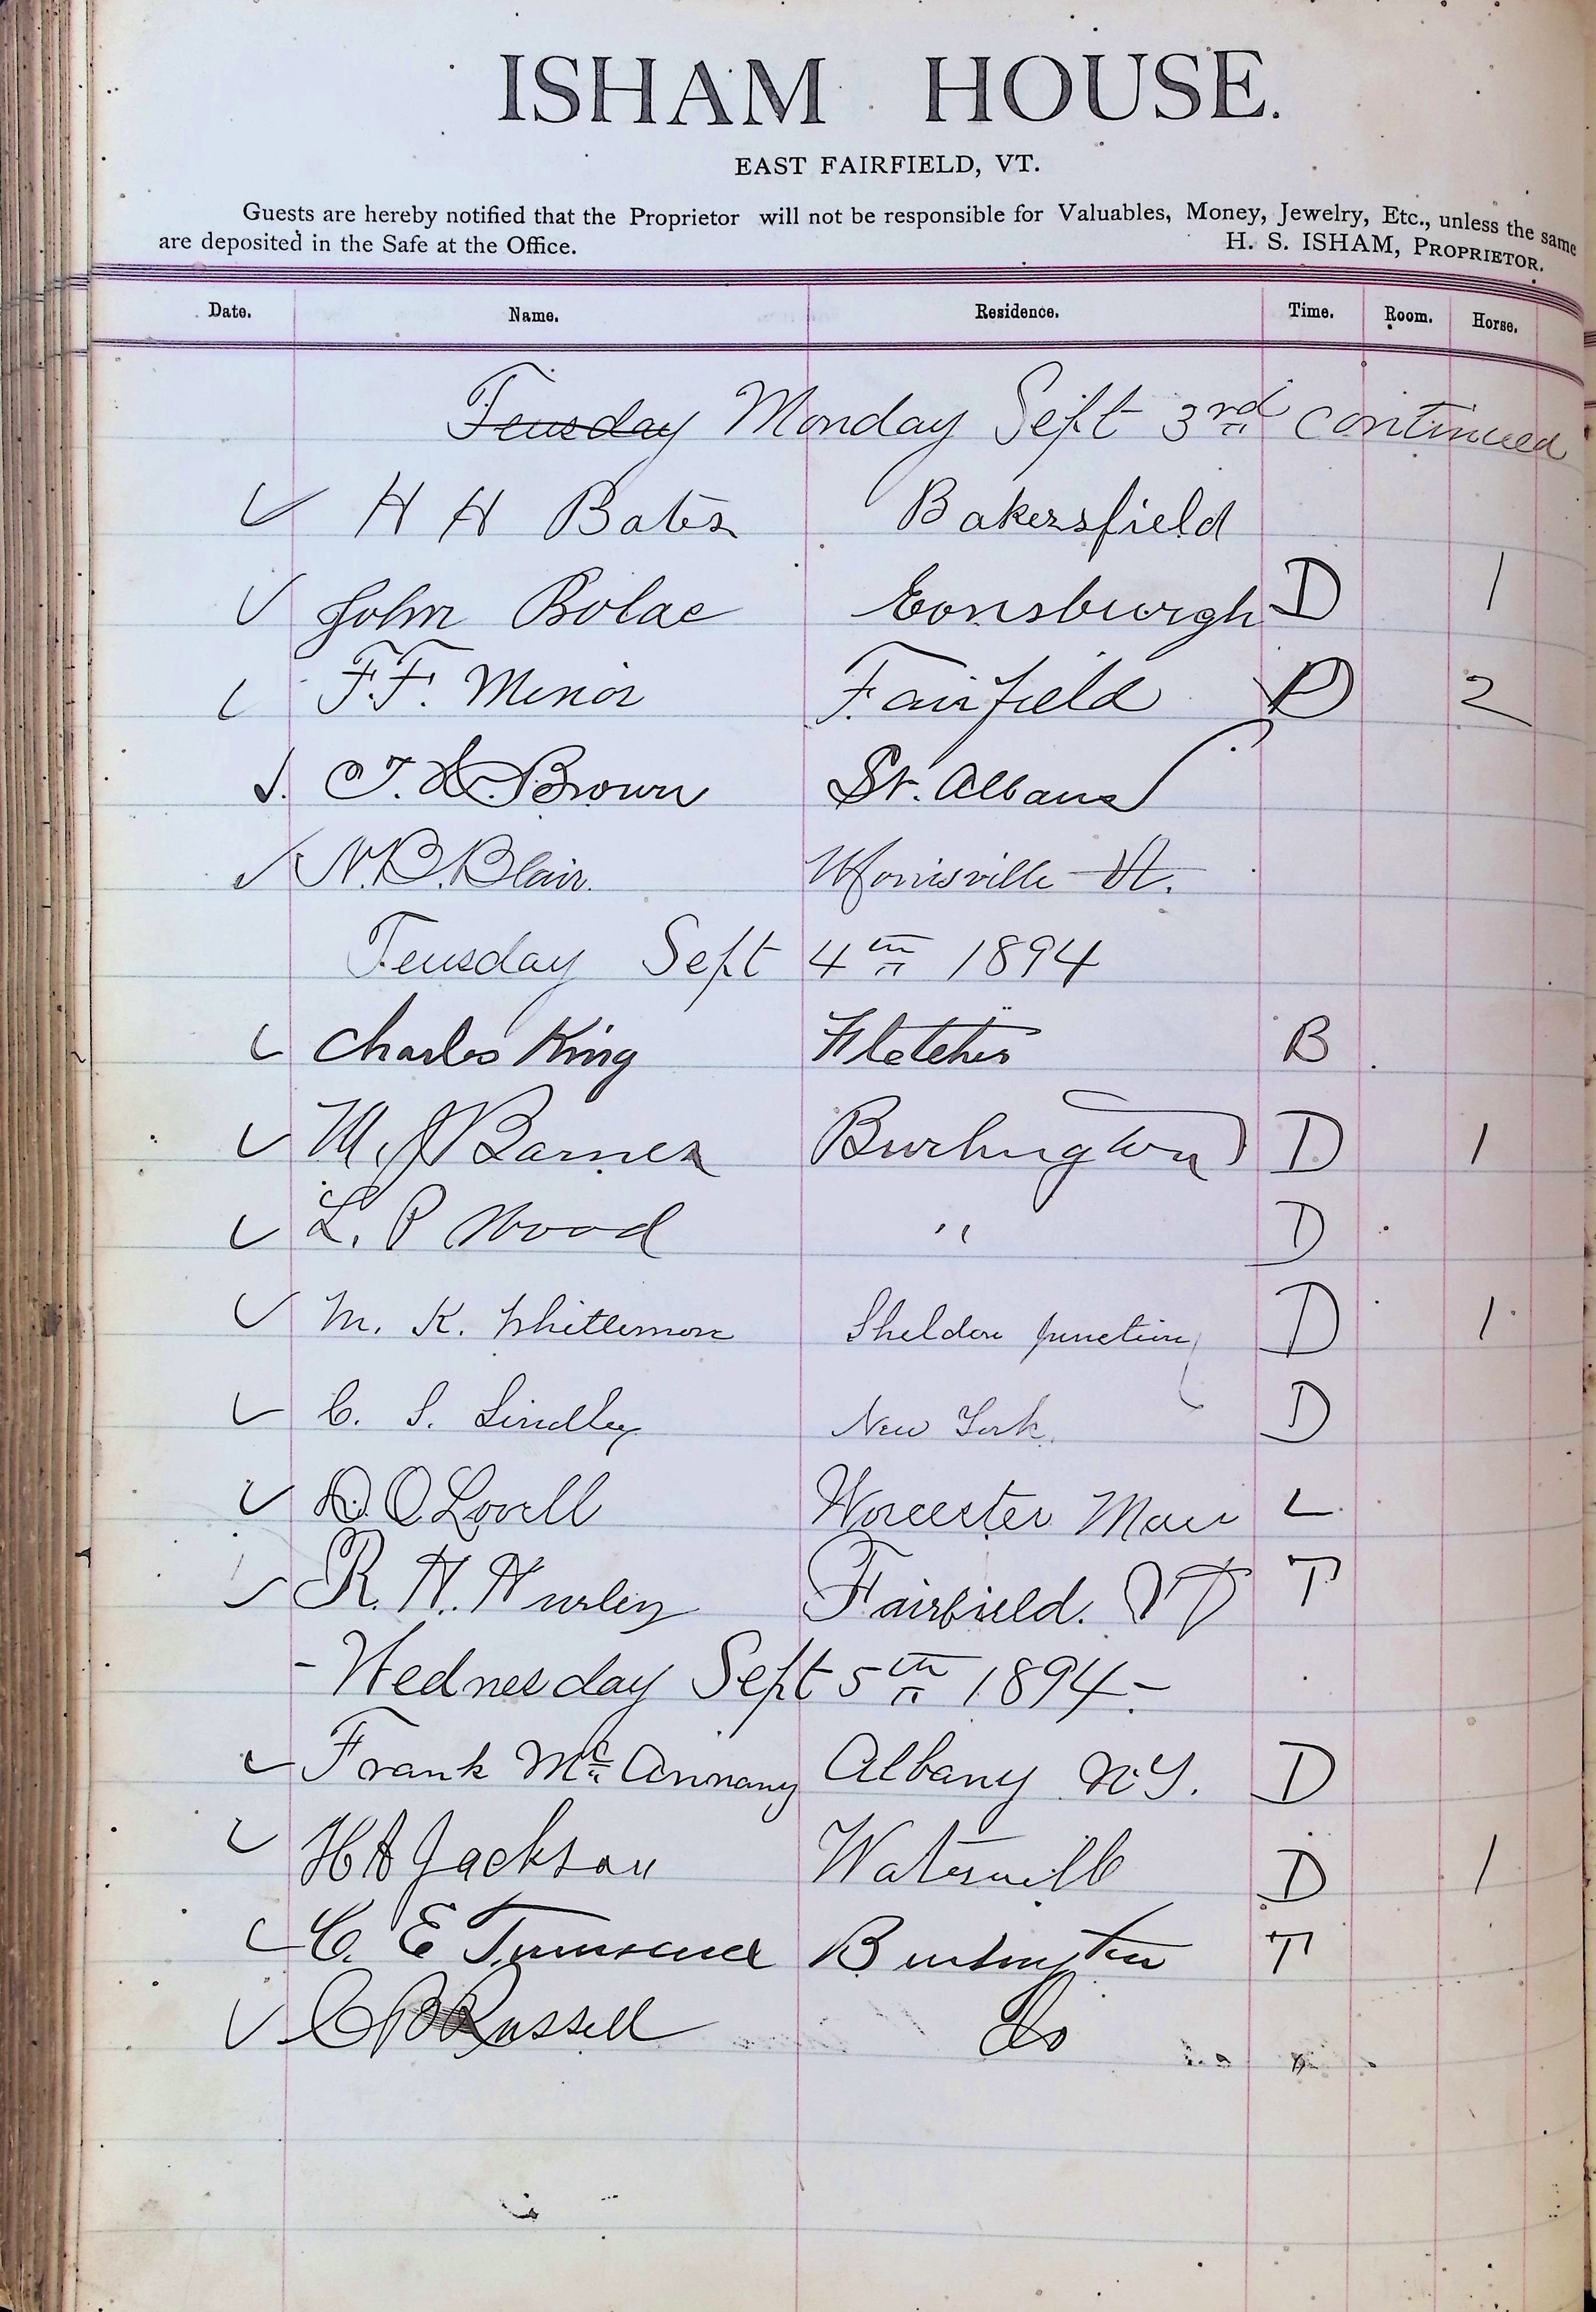 ISHAM HOUSE.
EAST FAIRFIELD, VT.
Guests are hereby notified that the Proprietor will not be responsible for Valuables, Money, Jewelry, Etc., unless the same
are deposited in the Safe at the Office. H. S. ISHAM, PROPRIETOR.
Date. Name. Residence. Time. Room. Horse.
Teusday Monday Sept 3rd continued
H H Bates Bakersfield
John Bolac Eonsburgh D 1
F.F. Minor Fairfield D 2
Brown St. Albans
N.B. Blair. Morrisville Vt.
Teusday Sept 4th 1894
Charles King Fletcher B
M. J Barnes Burlington D 1
L. P Wood " D
M. K. Whittemore Sheldon Junction D 1
C. S. Lindley New York. D
D. O Lovell Worcester Mass L
R. H. Hurley Fairfield. VT T
- Wednesday Sept 5th 1894 -
Frank Mc Annany Albany N.Y. D
H A Jackson Waterville D 1
C. E Townsend Burlington T
C B Russell Do